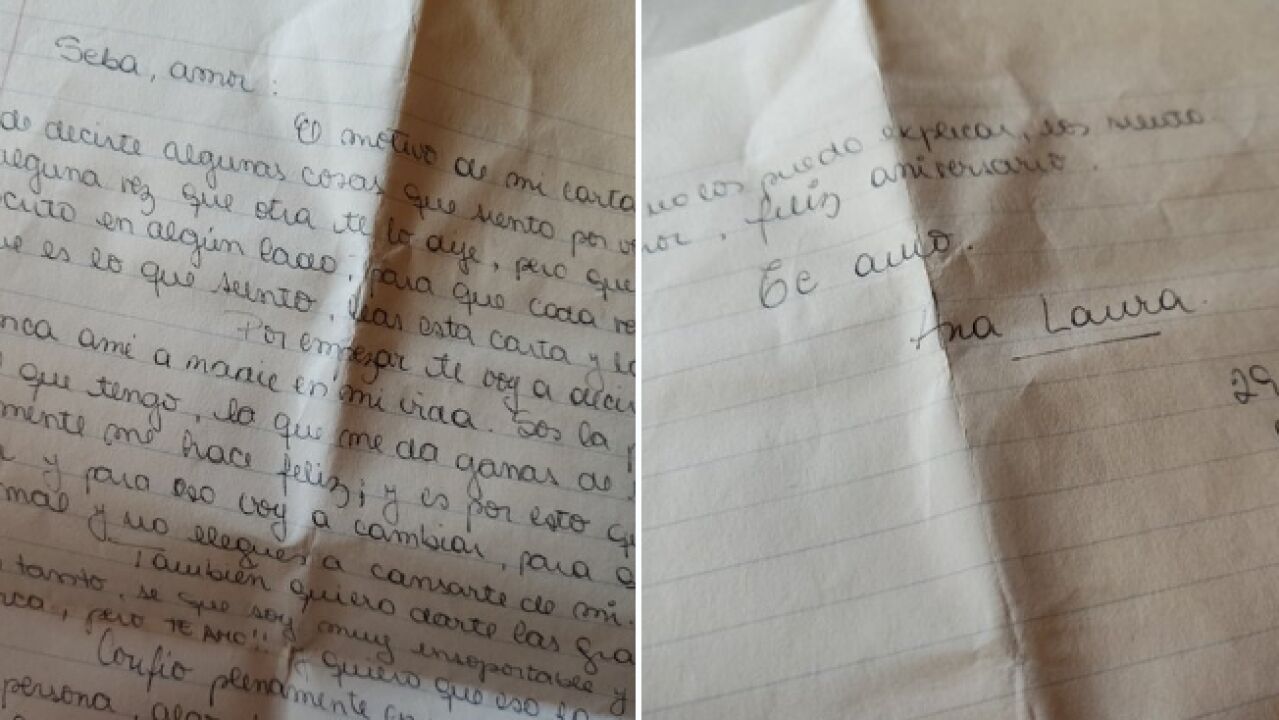 Seba, amor:
El motivo de mi carta
de decirte algunas cosas que siento por
alguna vez que otra te lo dije, pero que
en algún lado, para que cada
es lo que siento, leas esta carta y
Por empezar te voy a decir
nca amé a nadie en mi vida. Sos la
que tengo, lo que me da ganas de
mente me hace feliz; y es por esto q
y para eso voy a cambiar, para q
mal y no llegues a cansarte de mi.
También quiero darte las gra
tanto, se que soy muy insoportable y
rca, pero TE AMO!! quiero que eso
Confio plenamente
persona,
no los puedo explicar, los siento
mor, feliz aniversario.
Te amo.
Ana Laura.
29